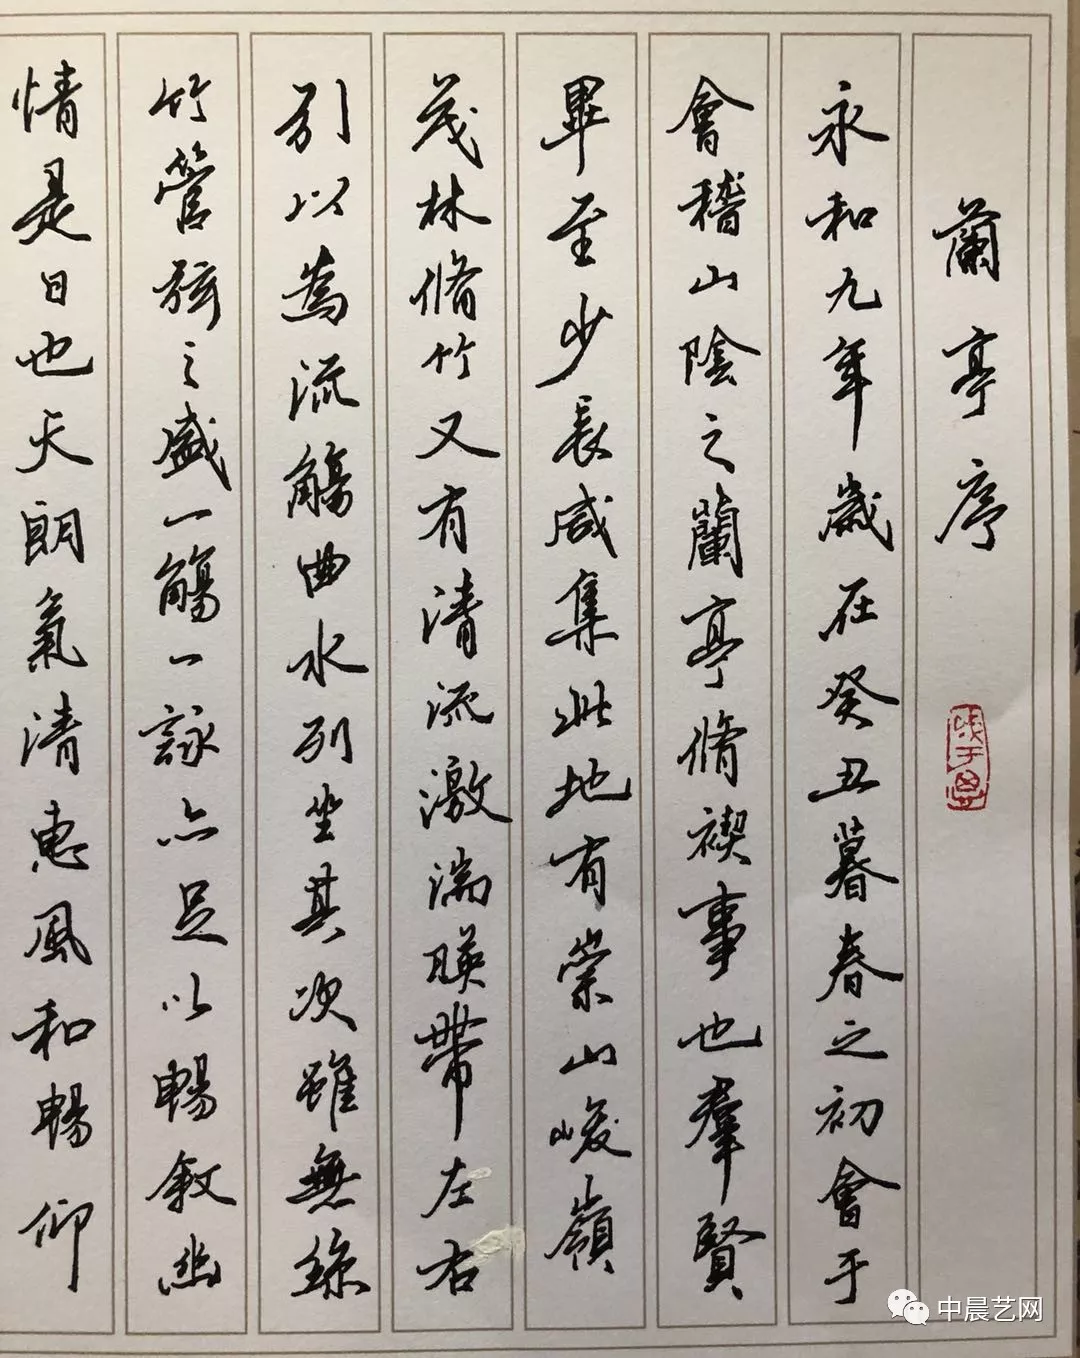 蘭亭序
永和九年歲在癸丑暮春之初會于
會稽山陰之蘭亭脩禊事也羣賢
畢至少長咸集此地有崇山峻嶺
茂林脩竹又有清流激湍暎帶左右
引以為流觴曲水列坐其次雖無絲
竹管弦之盛一觴一詠亦足以暢敘幽
情是日也天朗氣清惠風和暢仰
中晨艺网